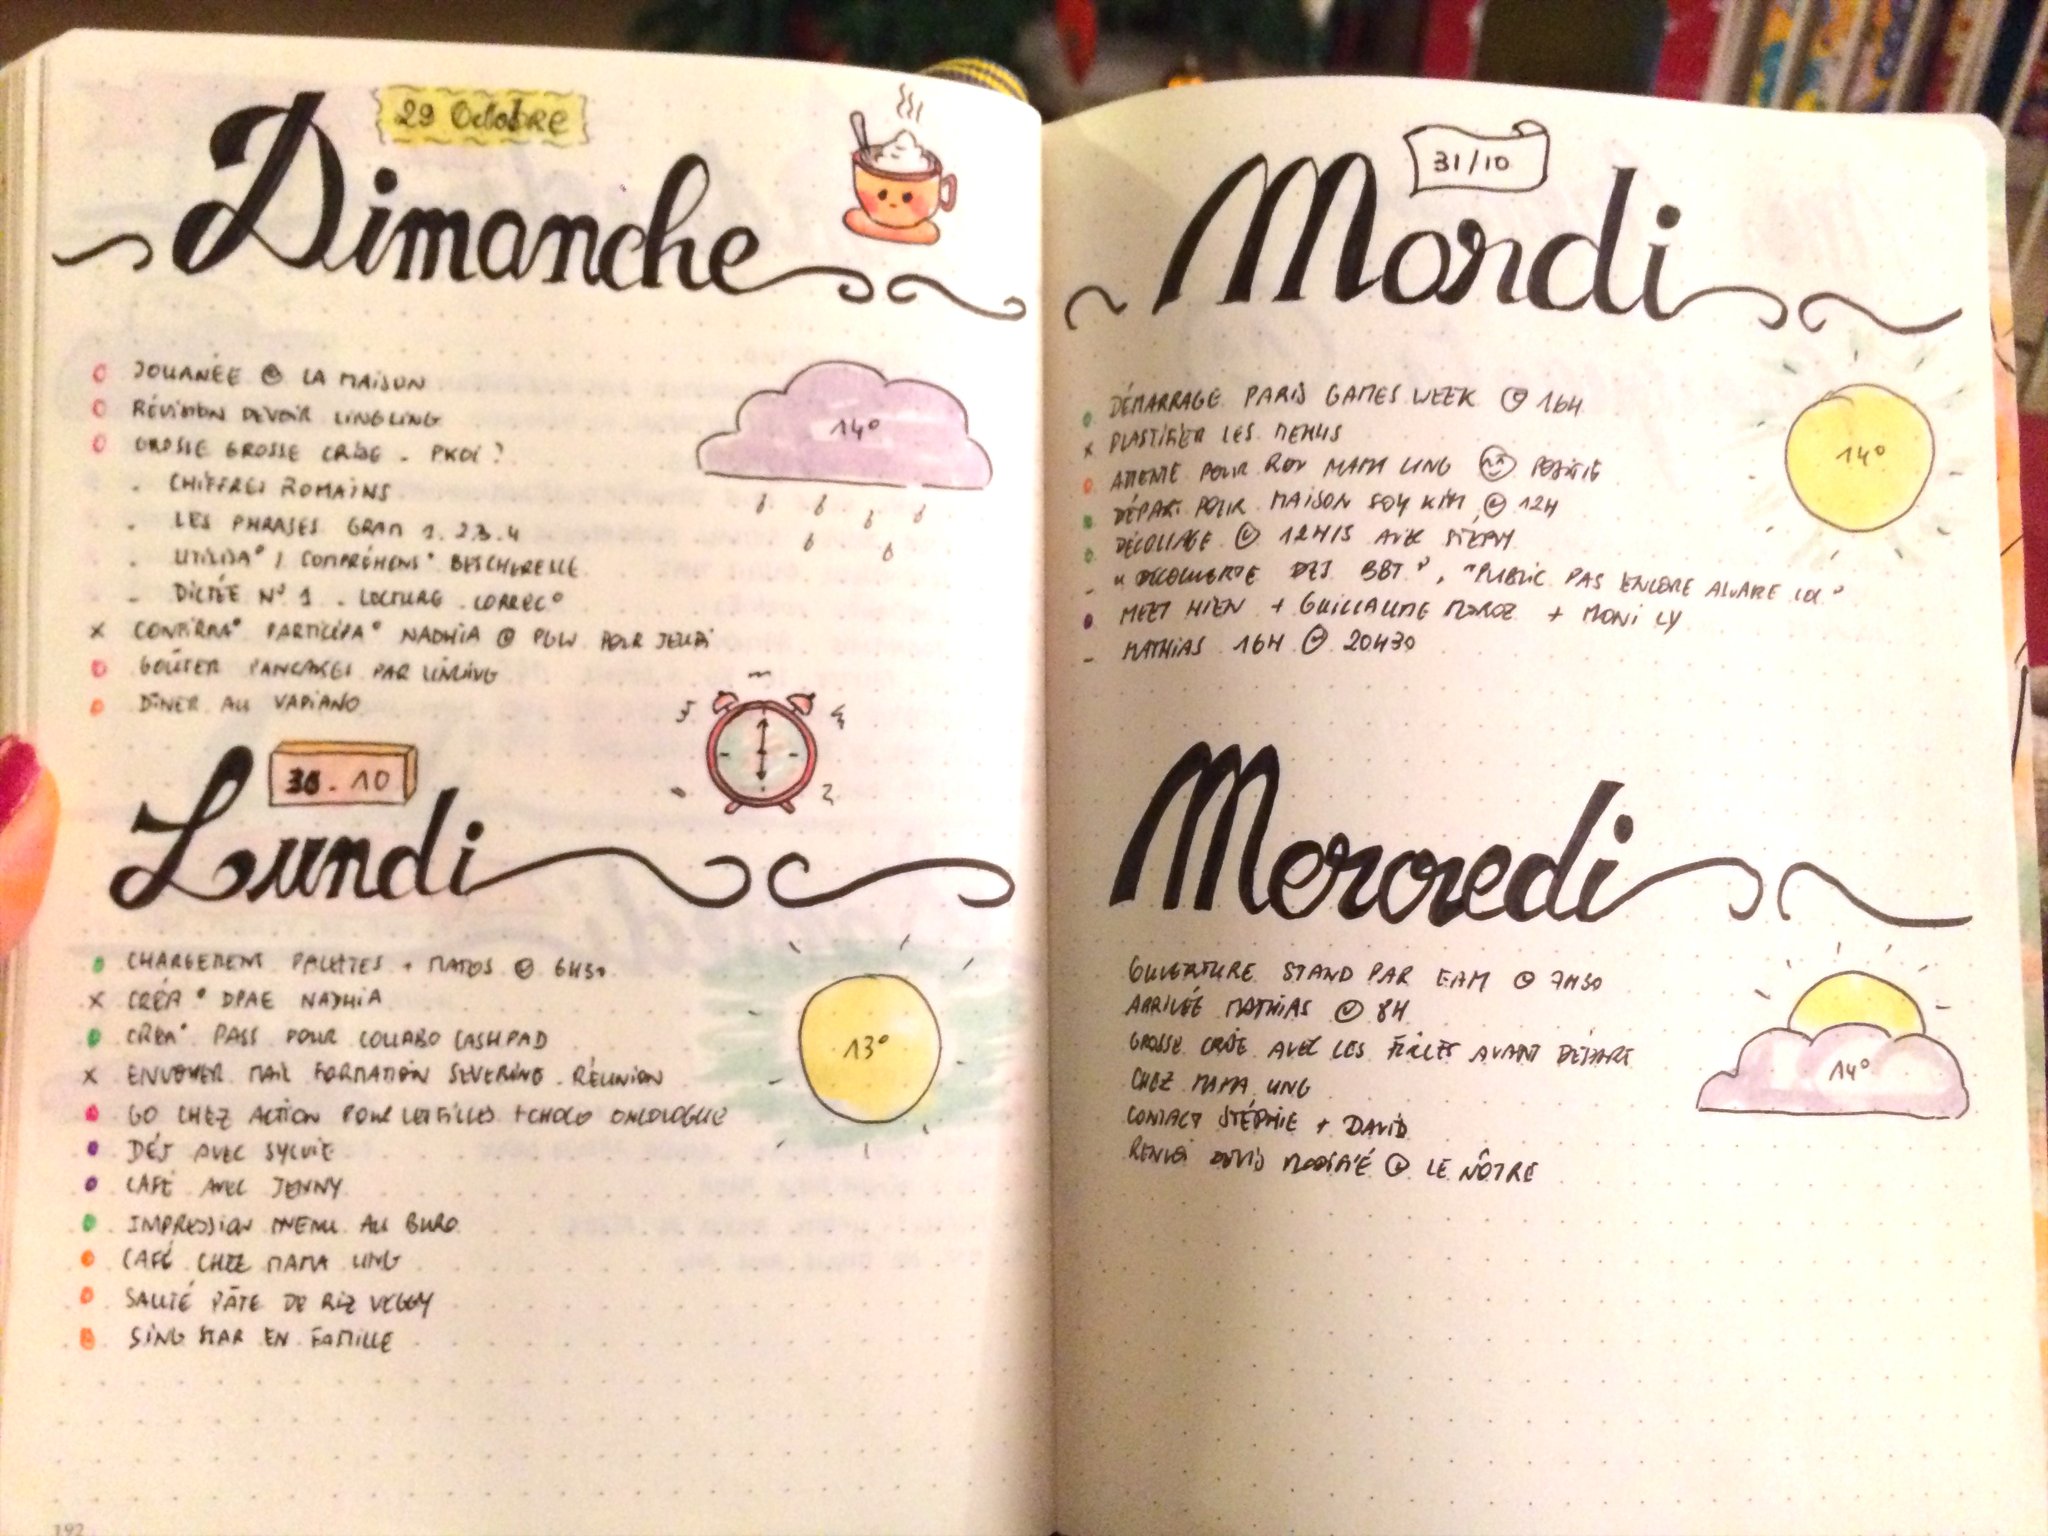 29 Octobre
Dimanche
JOURNÉE @ LA MAISON
RÉVISION DEVOIR LINGLING
GROSSE GROSSE CRISE - PKOI ?
- CHIFFRES ROMAINS
- LES PHRASES GRAM 1.2.3.4
- UTILISA° / COMPRÉHENS° BESCHERELLE
- DICTÉE N° 1 - LECTURE - CORREC°
x CONFIRMA° PARTICIPA° NADHIA @ PGW POUR JEUDI
GOÛTER PANCAKES PAR LINGLING
DINER AU VAPIANO
14°
30.10
Lundi
CHARGEMENT PALETTES + MATOS @ 6H30
x CRÉA° DPAE NADHIA
CRÉA° PASS POUR COLLABO CASHPAD
x ENVOYER MAIL FORMATION SEVERINE - RÉUNION
GO CHEZ ACTION POUR LES FILLES + CHOCO ONCOLOGUE
DÉJ AVEC SYLVIE
CAFÉ AVEC JENNY
IMPRESSION MENU AU BURO
CAFÉ CHEZ MAMA LING
SAUTÉ PÂTE DE RIZ VEGGY
SING STAR EN FAMILLE
13°
192
31/10
Mardi
DÉMARRAGE PARIS GAMES WEEK @ 16H
x PLASTIFIER LES MENUS
ATTENTE POUR RDV MAMA LING POSITIF
DÉPART POUR MAISON SOY KIM @ 12H
DÉCOLLAGE @ 12H15 AVEC STÉPHY
- "DÉCOUVERTE DES BBT", "PUBLIC PAS ENCORE AWARE LOL"
MEET HIEN + GUILLAUME MOROZ + MONI LY
- MATHIAS 16H @ 20H30
14°
Mercredi
OUVERTURE STAND PAR EAM @ 7H30
ARRIVÉE MATHIAS @ 8H
GROSSE CRISE AVEC LES FILLES AVANT DÉPART
CHEZ MAMA LING
CONTACT STÉPHIE + DAVID
RENVOI DEVIS MODIFIÉ @ LE NÔTRE
14°